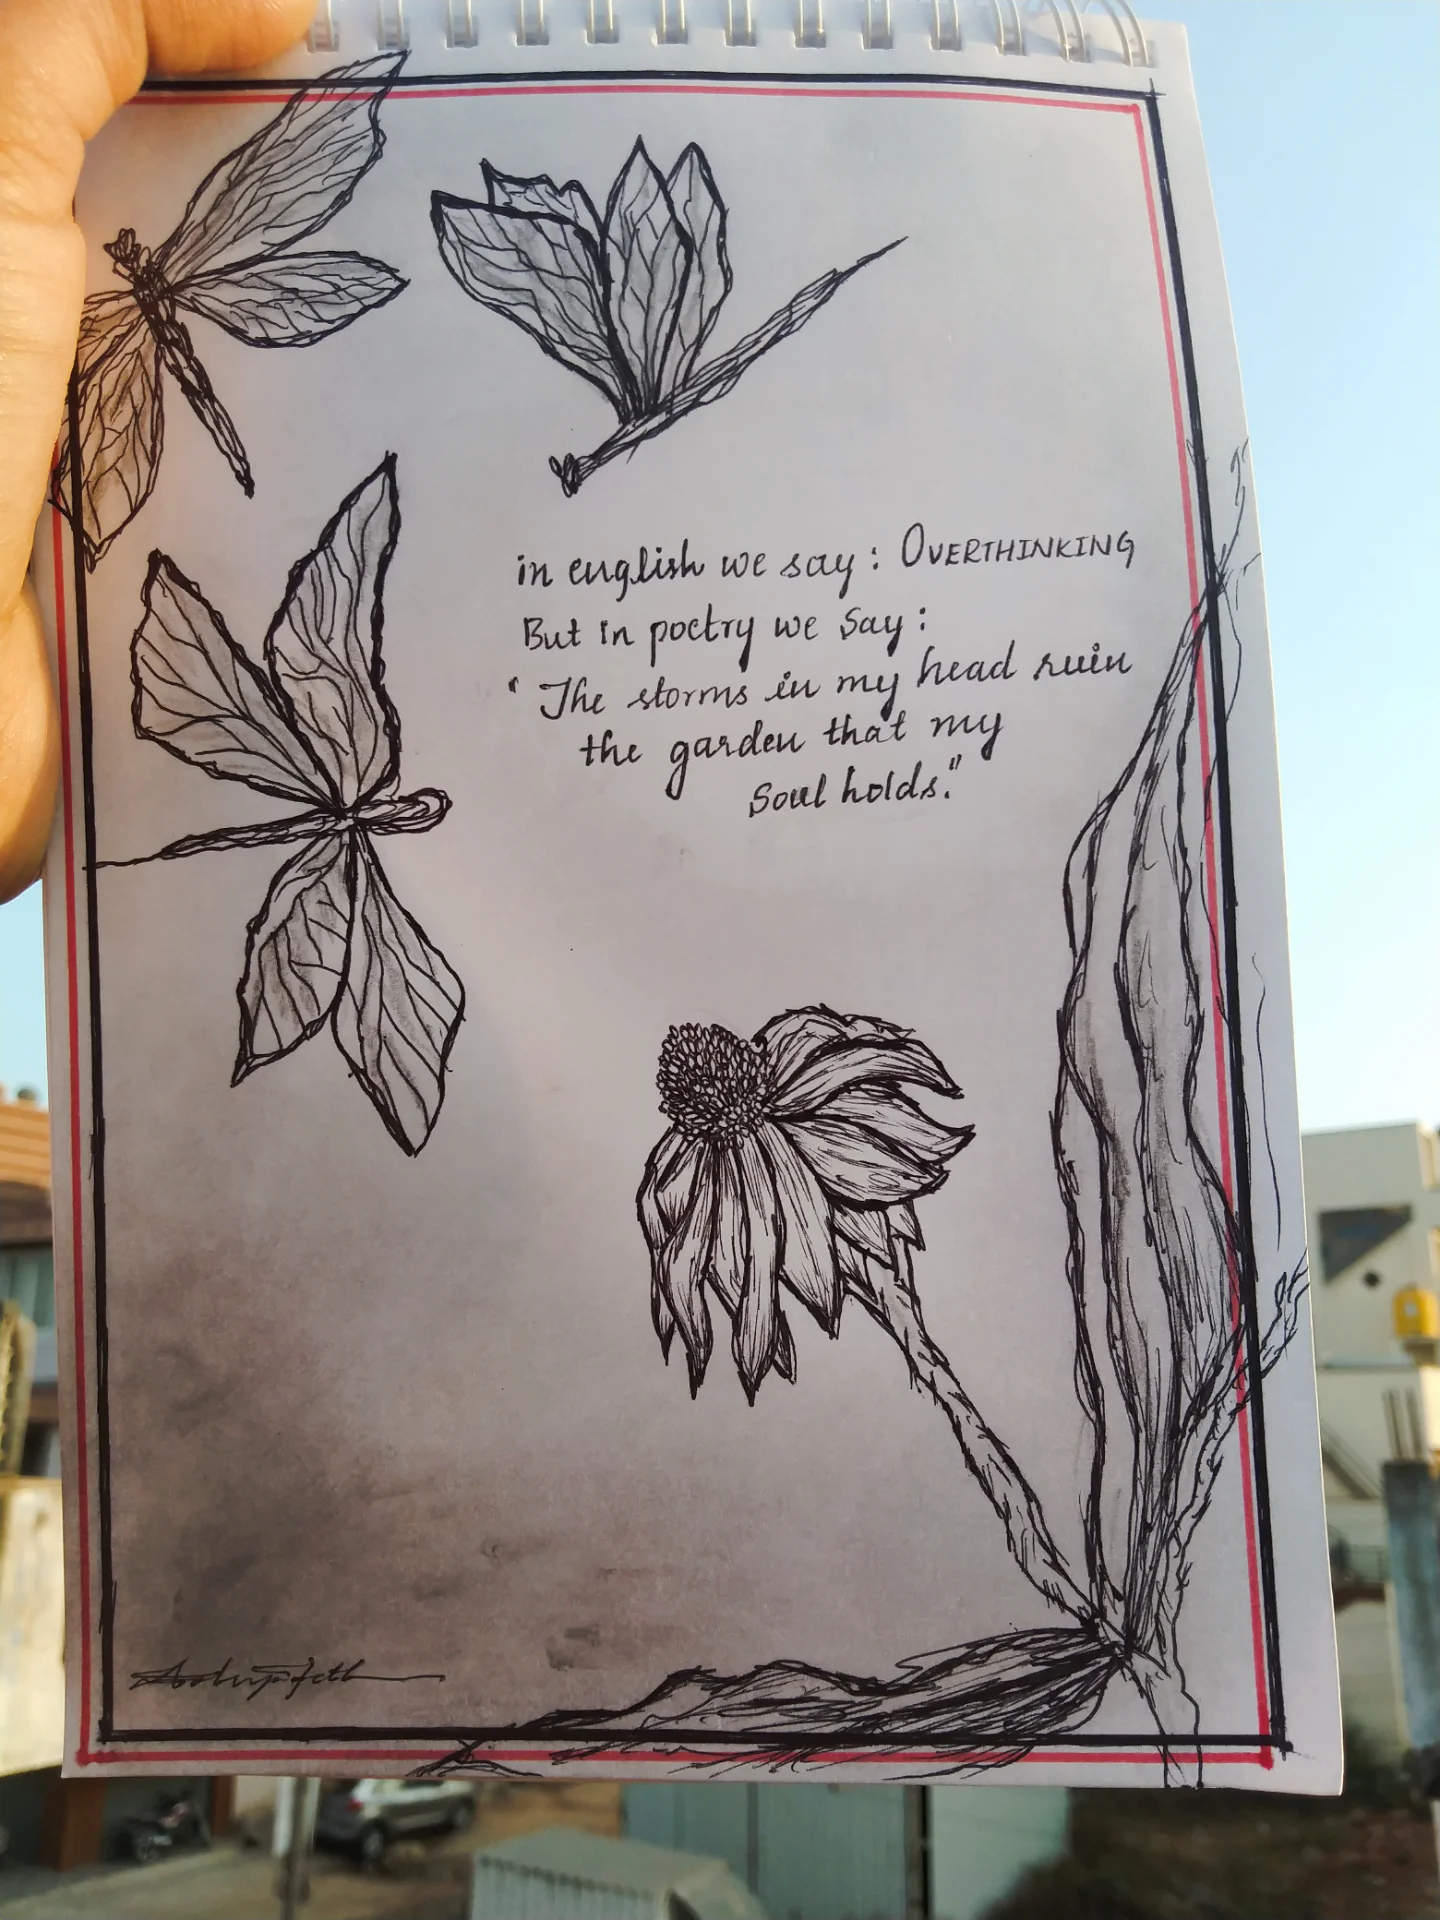 in english we say: OVERTHINKING
But in poetry we say:
"The storms in my head ruin
the garden that my
soul holds."